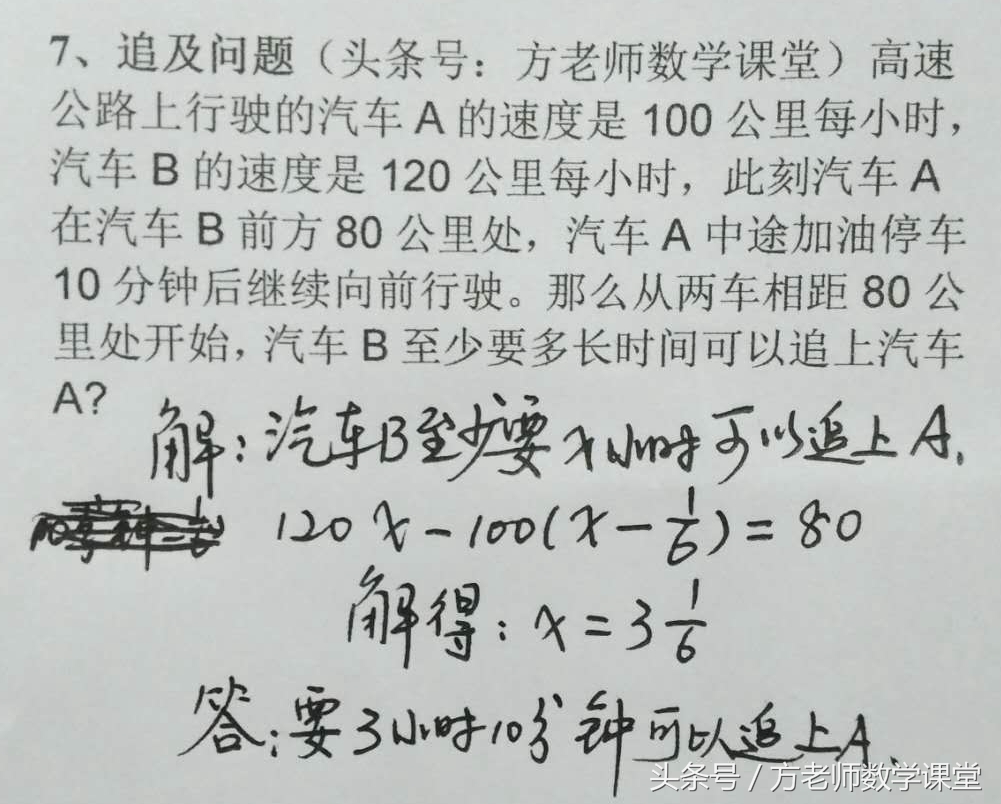 7、追及问题（头条号：方老师数学课堂）高速
公路上行驶的汽车 A 的速度是 100 公里每小时，
汽车 B 的速度是 120 公里每小时，此刻汽车 A
在汽车 B 前方 80 公里处，汽车 A 中途加油停车
10 分钟后继续向前行驶。那么从两车相距 80 公
里处开始，汽车 B 至少要多长时间可以追上汽车
A?
解：汽车B至少要x小时可以追上A.
120x-100(x-1/6)=80
解得：x=3 1/6
答：要3小时10分钟可以追上A.
头条号 / 方老师数学课堂